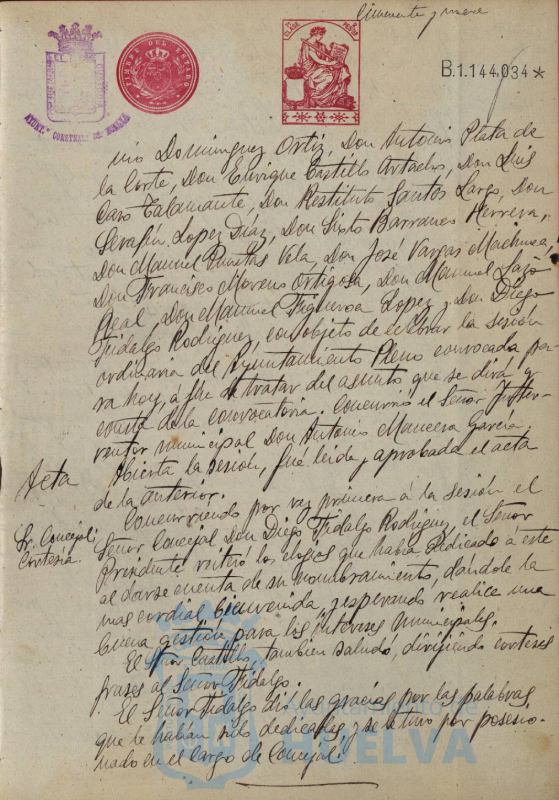 Cincuenta y nueve
AYUNT.º CONSTNAL. DE HUELVA
TIMBRE DEL ESTADO
B.1.144.034*
nio Dominguez Ortiz, Don Antonio Plata de
la Corte, Don Enrique Castillo Don Luis
Caro Talamante, Don Restituto Santos Largo, Don
Serafín Lopez Díaz, Don Sixto Barranco Herrera,
Don Manuel Puntas Vela, Don José Vargas Machuca,
Don Francisco Moreno Ortigosa, Don Manuel Lazo
Real, Don Manuel Figueroa Lopez y Don Diego
Fidalgo Rodriguez, con objeto de celebrar la sesión
ordinaria del Ayuntamiento Pleno convocada pa-
ra hoy, á fin de tratar del asunto que se dirá y
consta de la convocatoria. Concurrió el Señor Inter-
ventor municipal Don Antonio Mancera García.
Acta Abierta la sesión, fué leida y aprobada el acta
de la anterior.
Sr. Concejal: Cortesía. Concurriendo por vez primera á la sesión el
Señor Concejal Don Diego Fidalgo Rodriguez, el Señor
Presidente reiteró los elogios que había dedicado a este
al darse cuenta de su nombramiento, dándole la
mas cordial bienvenida, y esperando realice una
buena gestión para los intereses municipales.
El Señor Castillo, tambien saludó, dirigiendo corteses
frases al Señor Fidalgo.
El Señor Fidalgo dió las gracias por las palabras
que le habían sido dedicadas, y se le tuvo por posesio-
nado en el cargo de Concejal.
Ayuntamiento de
HUELVA